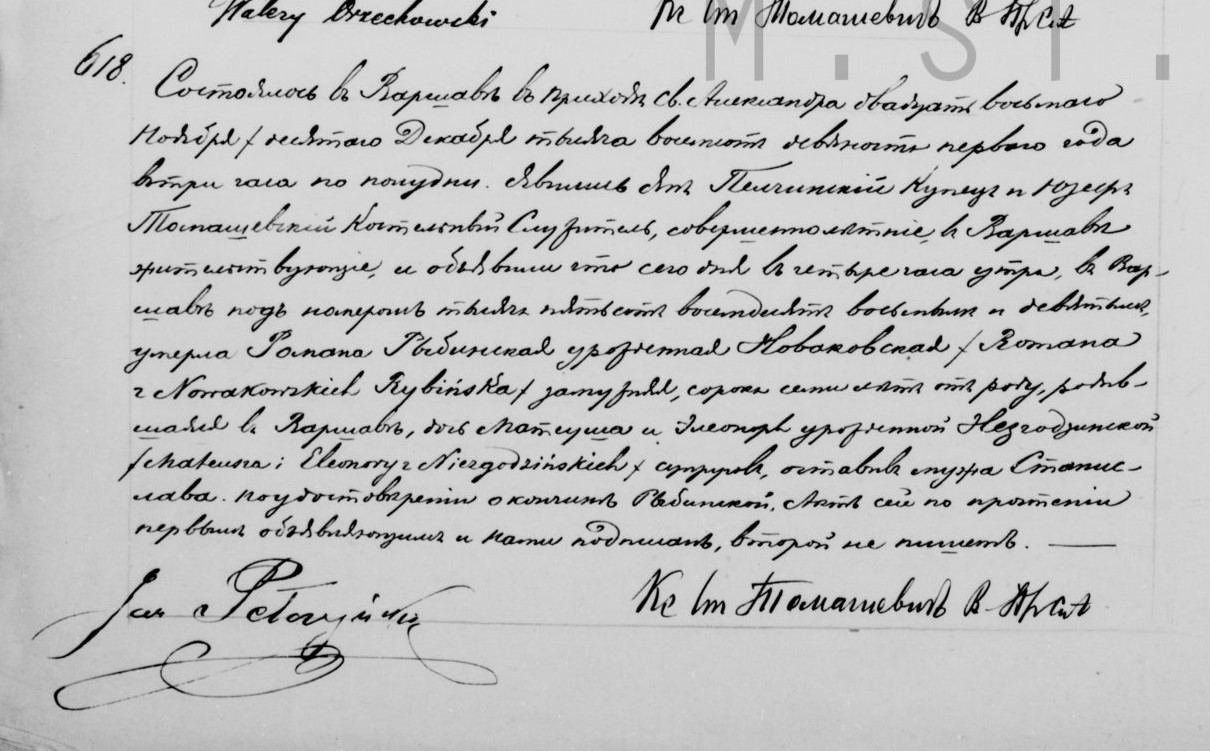 Walery Orzechowski Кс Ст Томашевичъ В. Пр. С. А
M. ST.
618.
Состоялось въ Варшавѣ въ приходѣ Св. Александра двадцать восьмаго
Ноября / десятаго Декабря тысяча восемьсотъ девяносто перваго года
въ три часа по полудни. Явились Янъ Пелчинскій Купецъ и Юзефъ
Томашевскій Костельный Служитель, совершеннолѣтніе, въ Варшавѣ
жительствующіе, и объявили что сего дня въ четыре часа утра, въ Вар-
шавѣ подъ номеромъ тысяча пятьсотъ восемдесятъ восьмымъ и девятымъ,
умерла Романа Рыбинская урожденная Новаковская / Romana
z Nowakowskich Rybińska / замужняя, сорокъ семь лѣтъ отъ роду, родив-
шаяся въ Варшавѣ, дочь Матеуша и Элеоноры урожденной Незгодзинской
/ Mateusza i Eleonory z Niezgodzińskich / супруговъ, оставивъ мужа Станис-
лава. По удостовѣреніи о кончинѣ Рыбинской, Актъ сей по прочтеніи
первымъ объявляющимъ и нами подписанъ, второй не пишетъ.
Jan Кс Ст Томашевичъ В. Пр. С. А